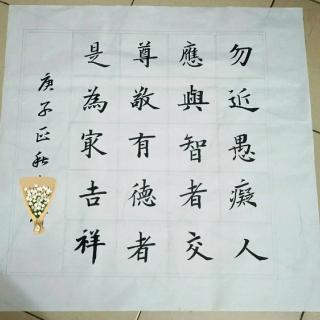 勿近愚癡人
應與智者交
尊敬有德者
是為最吉祥
庚子正秋